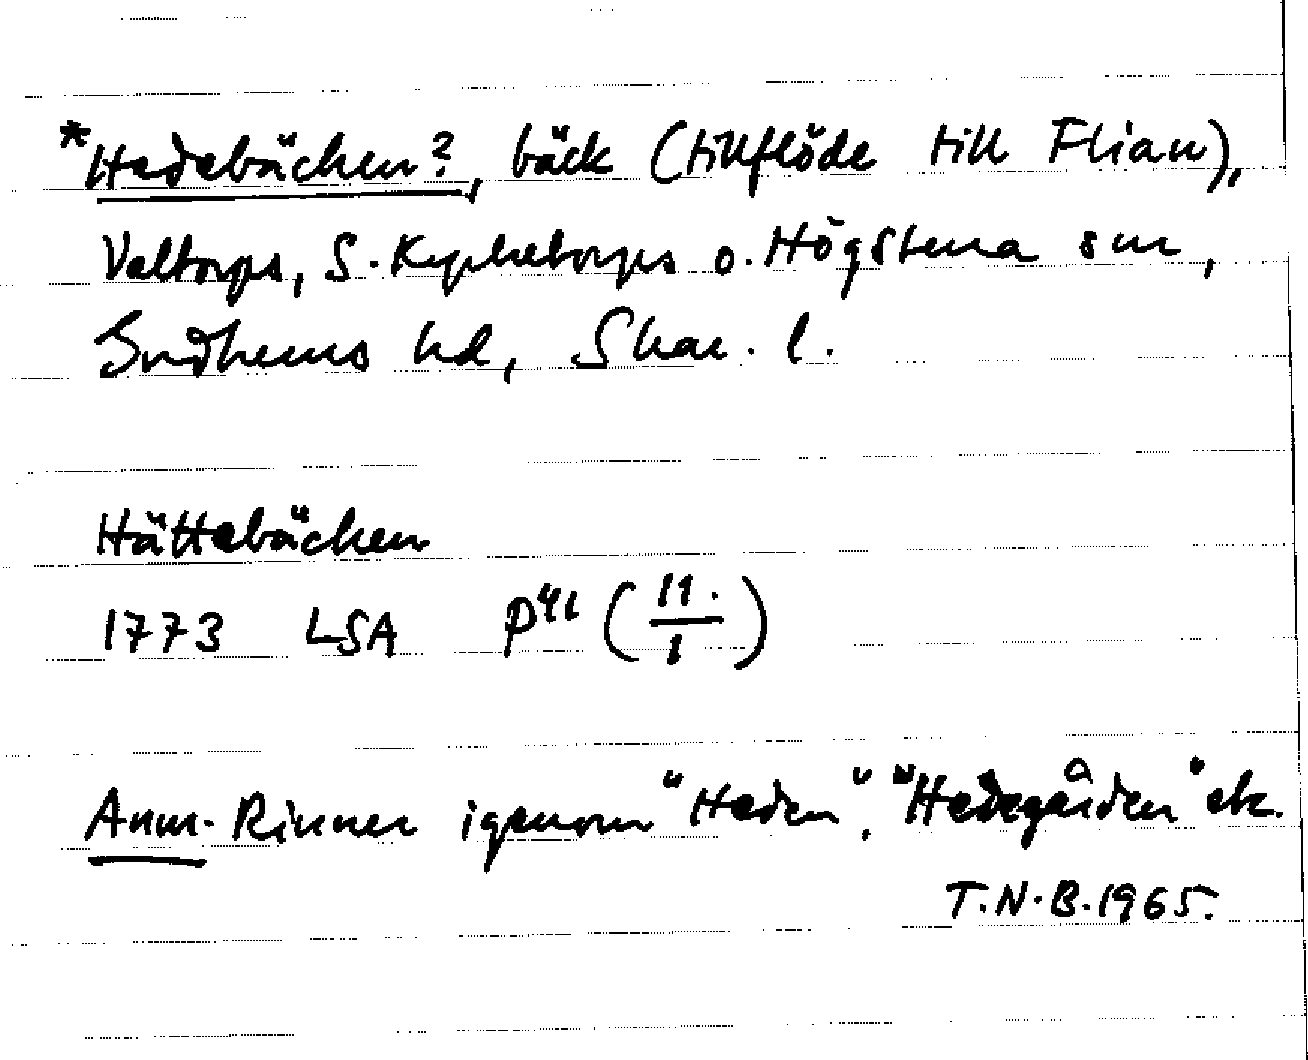 *Hedebäcken?, bäck (tillflöde till Flian),
Valtorps, S. Kyrketorps o. Högstena snr,
Gudhems hd, Skar. l.
Hättebäcken
1773 LSA P⁴¹ (11./1)
Anm. Rinner igenom "Heden", "Hedegården" etc.
T.N.B. 1965.